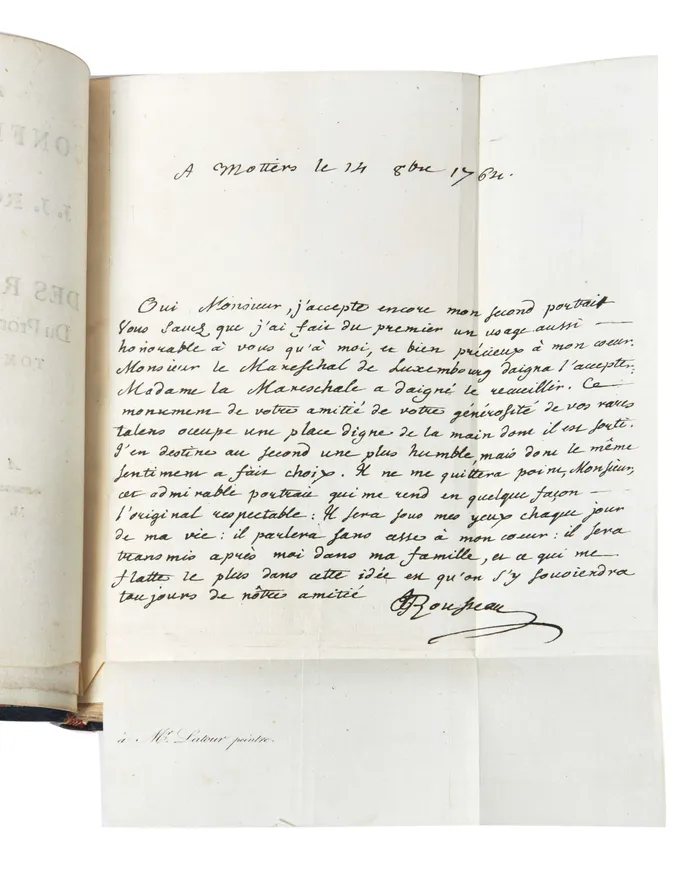 CONFE
J. J. RO
DES R
Du Prom
TOM
A
M.
A Motiers le 14 8bre 1764.
Oui Monsieur, j'accepte encore mon second portrait
Vous savez que j'ai fait du premier un usage aussi —
honorable à vous qu'à moi, et bien précieux à mon coeur.
Monsieur le Mareschal de Luxembourg daigna l'accepter:
Madame la Mareschale a daigné le recueillir. Ce —
monument de votre amitié de votre générosité de vos rares
talens occupe une place digne de la main dont il est sorti.
J'en destine au second une plus humble mais dont le même
sentiment a fait choix. Il ne me quittera point, Monsieur,
cet admirable portrait qui me rend en quelque façon —
l'original respectable: Il sera sous mes yeux chaque jour
de ma vie: il parlera sans cesse à mon coeur: il sera
transmis après moi dans ma famille, et ce qui me —
flatte le plus dans cette idée est qu'on s'y souviendra
toujours de nôtre amitié JJRousseau
à Mr. Latour peintre.